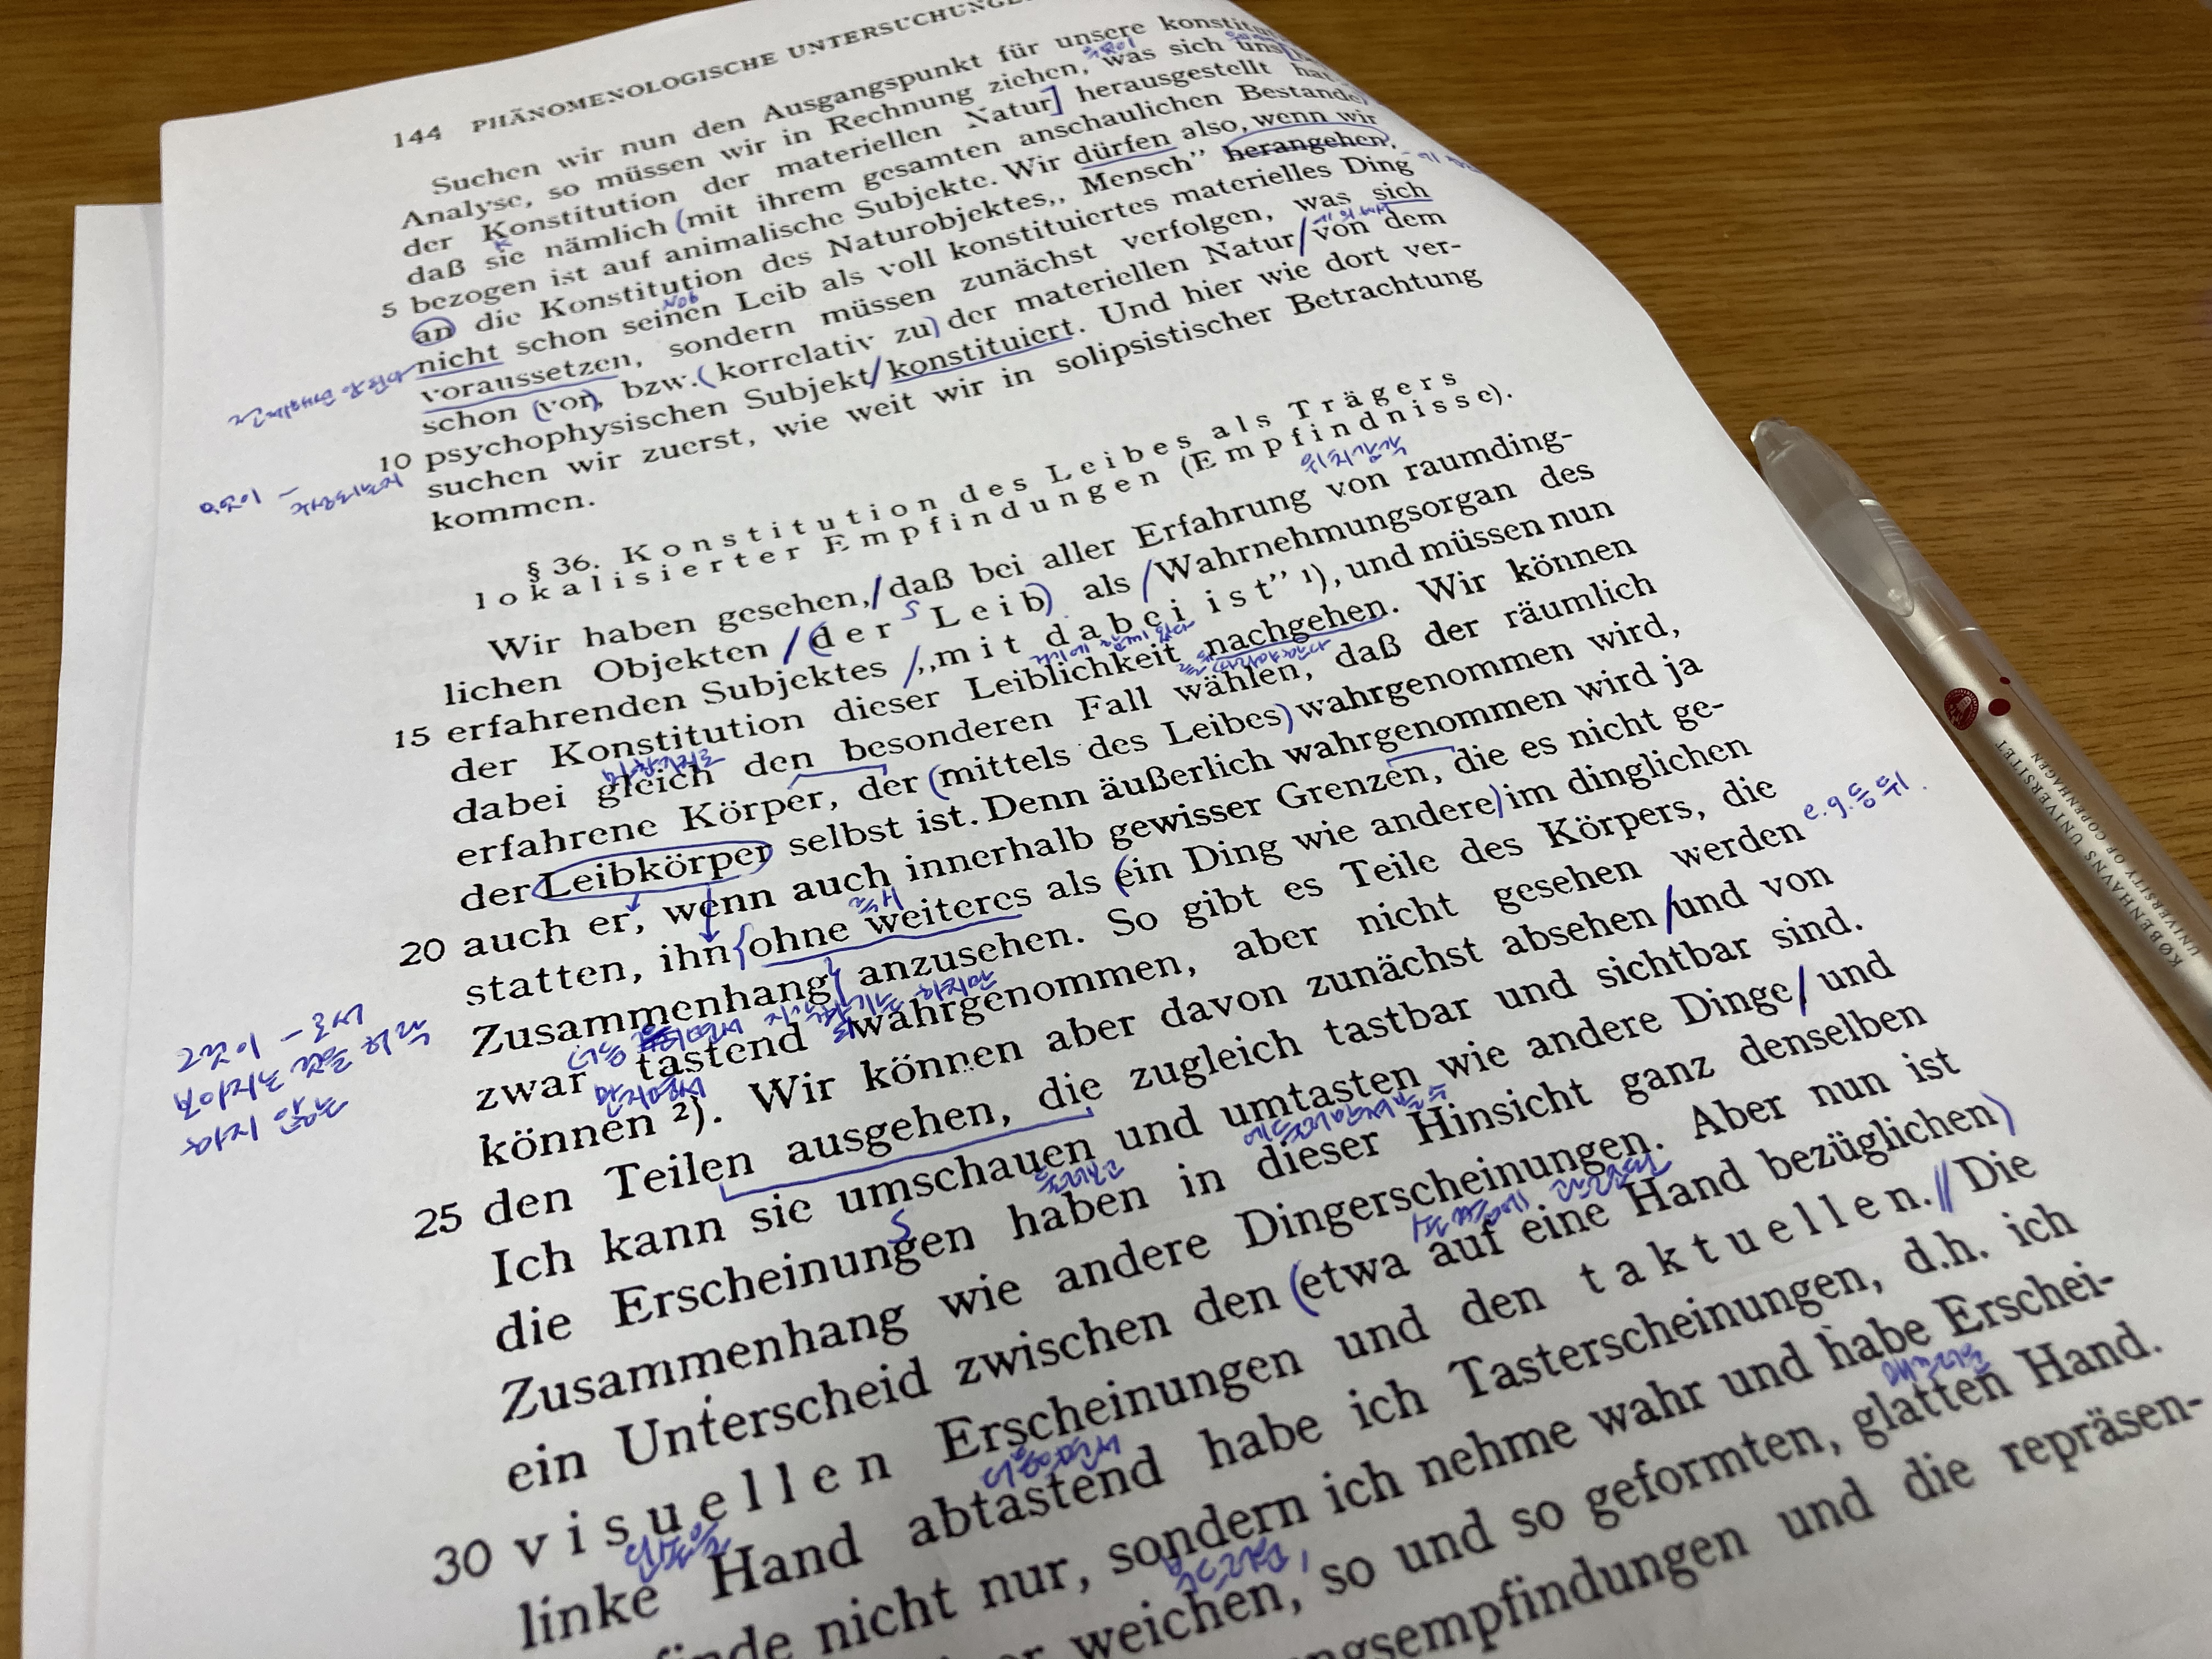 144 PHÄNOMENOLOGISCHE
Suchen wir nun den Ausgangspunkt für unsere
Analyse, so müssen wir in Rechnung ziehen, was sich uns
der Konstitution der materiellen Natur] herausgestellt hat
daß sie nämlich (mit ihrem gesamten anschaulichen Bestande
5 bezogen ist auf animalische Subjekte. Wir dürfen also, wenn wir
an die Konstitution des Naturobjektes,, Mensch” herangehen,
nicht schon seinen Leib als voll konstituiertes materielles Ding
voraussetzen, sondern müssen zunächst verfolgen, was sich
schon (vor), bzw. (korrelativ zu) der materiellen Natur/von dem
10 psychophysischen Subjekt/konstituiert. Und hier wie dort ver-
suchen wir zuerst, wie weit wir in solipsistischer Betrachtung
kommen.
§ 36. Konstitution des Leibes als Trägers
lokalisierter Empfindungen (Empfindnisse).
위치감각
Wir haben gesehen,/daß bei aller Erfahrung von raumding-
lichen Objekten /(der Leib) als /Wahrnehmungsorgan des
15 erfahrenden Subjektes /„mit dabei ist” 1), und müssen nun
der Konstitution dieser Leiblichkeit nachgehen. Wir können
dabei gleich den besonderen Fall wählen, daß der räumlich
erfahrene Körper, der (mittels des Leibes) wahrgenommen wird,
der Leibkörper selbst ist. Denn äußerlich wahrgenommen wird ja
20 auch er, wenn auch innerhalb gewisser Grenzen, die es nicht ge-
statten, ihn {ohne weiteres als (ein Ding wie andere) im dinglichen
Zusammenhang} anzusehen. So gibt es Teile des Körpers, die
zwar tastend wahrgenommen, aber nicht gesehen werden
e.g. 등 뒤.
만지면서
können 2). Wir können aber davon zunächst absehen /und von
25 den Teilen ausgehen, die zugleich tastbar und sichtbar sind.
Ich kann sie umschauen und umtasten wie andere Dinge/ und
die Erscheinungen haben in dieser Hinsicht ganz denselben
Zusammenhang wie andere Dingerscheinungen. Aber nun ist
ein Unterscheid zwischen den (etwa auf eine Hand bezüglichen)
30 visuellen Erscheinungen und den taktuellen.// Die
linke Hand abtastend habe ich Tasterscheinungen, d.h. ich
nicht nur, sondern ich nehme wahr und habe Erschei-
weichen, so und so geformten, glatten Hand.
und die repräsen-
그것이 -로서
보여지는 것을 허락
하지 않는
KØBENHAVNS UNIVERSITET
UNIVERSITY OF COPENHAGEN